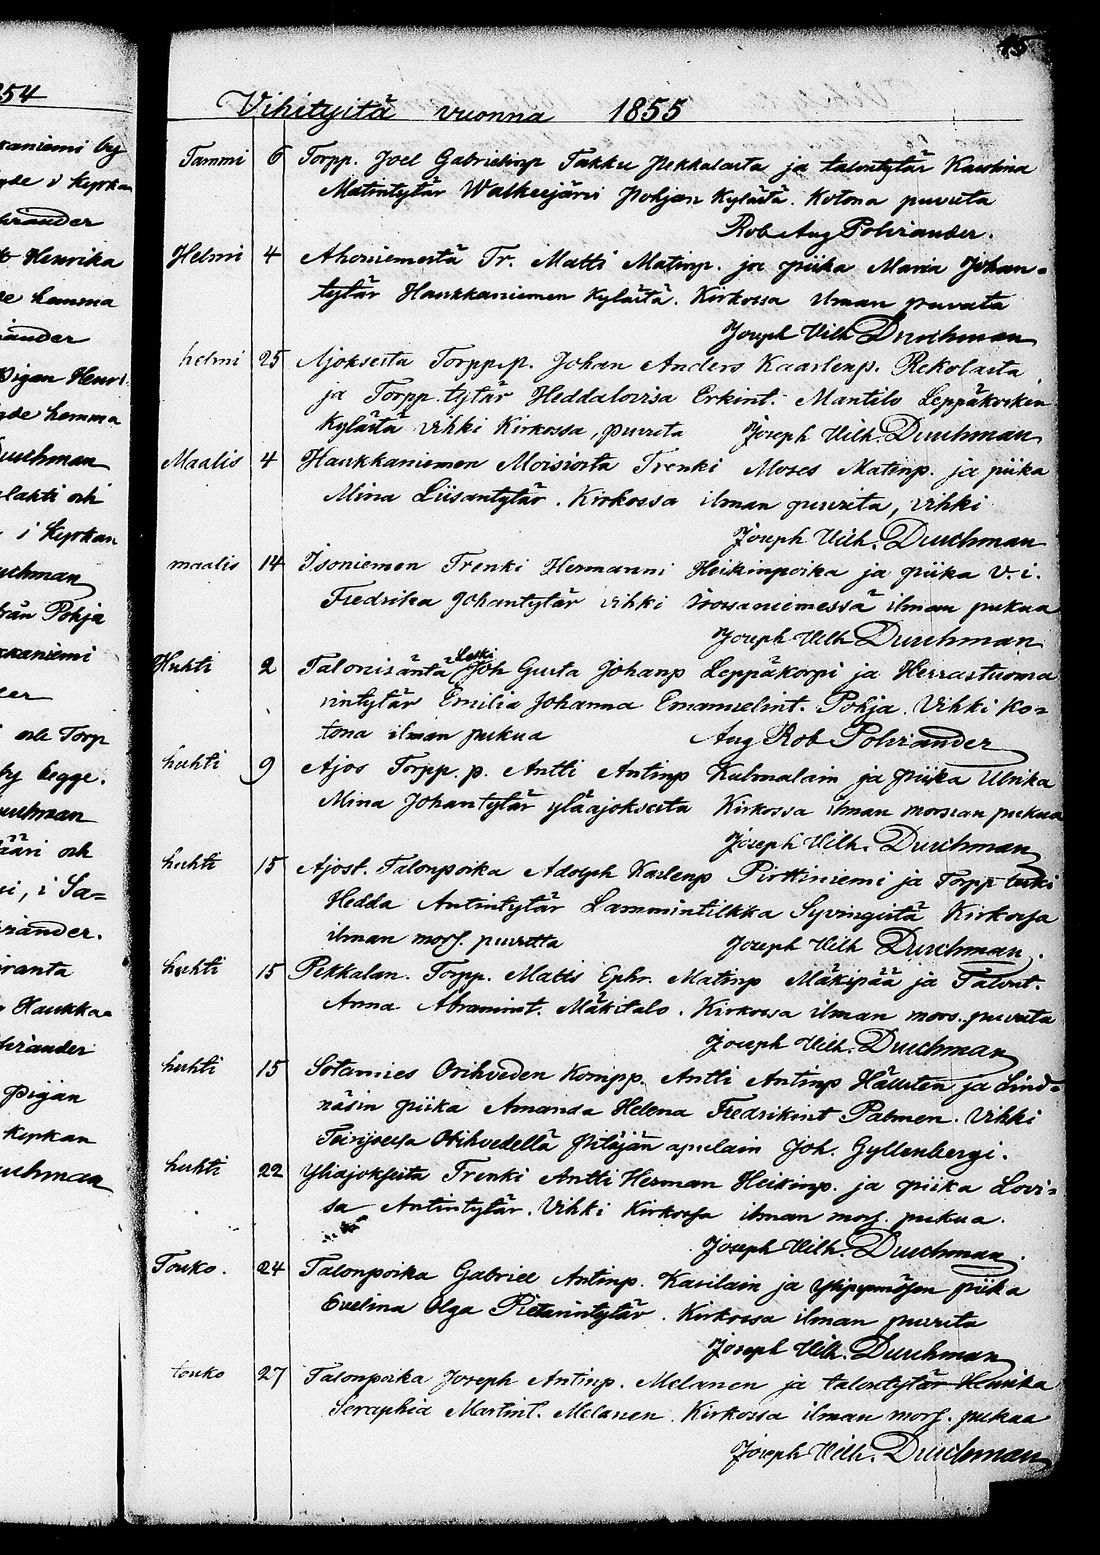 854
kaniemi by
gde i Kepkan
hrander
Henrika
de hemma
iander
Pigan Henri
gde hemma
Durchman
lahti och
i Kepkan
uchman
rän Pohja
kkaniemi
er
och Torp
by begge.
uchman
ääri och
i, i Sa=
riander.
iranta
Haukka=
hriander
Pigan
Kepkan
uchman
45
Vihityitä vuonna 1855
Tammi 6 Torpp. Joel Gabrielinp Takku Pekkalasta ja talontytär Karolina
Matintytär Walkeejärvi Pohjan Kylästä. Kotona puvuta
Rob Aug Pohiander.
Helmi 4 Ahoniemestä Tr. Matti Matinp. ja piika Maria Johan=
tytär Haukkaniemen Kylästä. Kirkossa ilman puvuta
Joseph Vilh Durchman
helmi 25 Ajoksesta Torpp.p. Johan Anders Kaarlenp. Rekolasta
ja Torpp. tytär Heddalovisa Erkint. Mantilo Leppäkosken
Kylästä vihki Kirkossa, puvuta Joseph Vilh. Durchman
Maalis 4 Haukkaniemen Moisiosta Trenki Moses Matinp. ja piika
Mina Liisantytär. Kirkossa ilman puvuta, vihki
Joseph Vilh. Durchman
maalis 14 Isoniemen Trenki Hermanni Heikinpoika ja piika v. i.
Fredrika Johantytär vihki ilman pukua
Joseph Vilh Durchman
Huhti 2 Talonisäntä Leski Joh Gusta Johanp Leppäkorpi ja Herrastuoma
rintytär Emilia Johanna Emanuelint. Pohja. Vihki Ko=
tona ilman pukua Aug Rob Pohiander
huhti 9 Ajos Torpp. p. Antti Antinp Kulmalain ja piika Ulrika
Mina Johantytär yläajoksesta Kirkossa ilman morsian pukua
Joseph Vilh. Durchman
huhti 15 Ajost. Talonpoika Adolph Karlenp Pirttiniemi ja Torpp leski
Hedda Antintytär Lammintilkka Syvingistä Kirkossa
ilman mors. puvutta Joseph Vilh Durchman.
huhti 15 Pekkalan. Torpp. Matts Ephr. Matinp Mäkipää ja Talont.
Anna Abramint. Mäkitalo. Kirkossa ilman mors. puvuta
Joseph Vilh. Durchman
huhti 15 Sotamies Orihveden Kompp. Antti Antinp Hällsten ja Lind=
näsin piika Amanda Helena Fredrikint Palmen. Vihki
Orihvedellä Pitäjän apulain Joh. Gyllenbergi.
huhti 22 Yliajoksesta Trenki Antti Herman Heikinp. ja piika Lovi=
sa Antintytär. Vihki Kirkossa ilman mors. pukua.
Joseph Vilh. Durchman.
Touko. 24 Talonpoika Gabriel Antinp. Kasilain ja piika
Evelina Olga Pietarintytär. Kirkossa ilman puvuta
Joseph Vilh. Durchman
touko 27 Talonpoika Joseph Antinp. Melanen ja talontytär Henrika
Seraphia Martint. Melanen. Kirkossa ilman mors. pukua
Joseph Vilh. Durchman